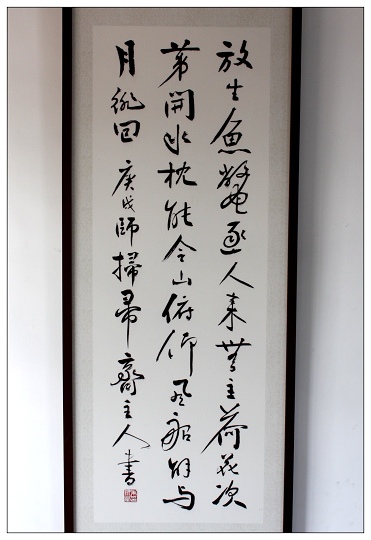 放生魚鼈逐人来無主荷花次
第開水枕能令山俯仰風船解与
月徘回 庚戌師掃帚齋主人書